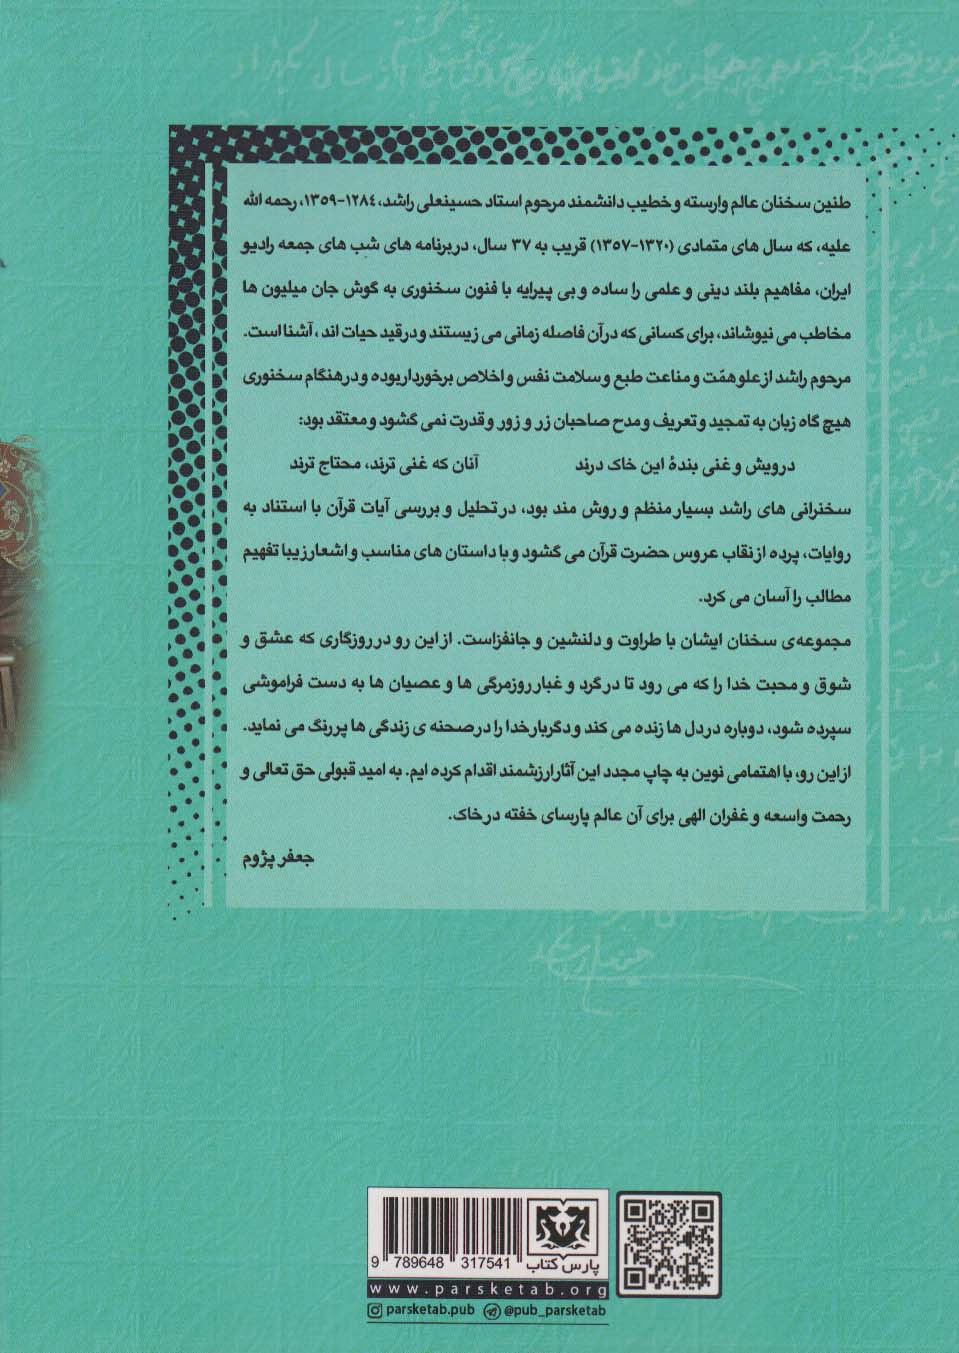 طنین سخنان عالم وارسته و خطیب دانشمند مرحوم استاد حسینعلی راشد، ۱۲۸۴-۱۳۵۹، رحمه الله
علیه، که سال های متمادی (۱۳۲۰-۱۳۵۷) قریب به ۳۷ سال، در برنامه های شب های جمعه رادیو
ایران، مفاهیم بلند دینی و علمی را ساده و بی پیرایه با فنون سخنوری به گوش جان میلیون ها
مخاطب می نیوشاند، برای کسانی که در آن فاصله زمانی می زیستند و در قید حیات اند، آشنا است.
مرحوم راشد از علو همّت و مناعت طبع و سلامت نفس و اخلاص برخوردار بوده و در هنگام سخنوری
هیچ گاه زبان به تمجید و تعریف و مدح صاحبان زر و زور و قدرت نمی گشود و معتقد بود:
درویش و غنی بندهٔ این خاک درند آنان که غنی ترند، محتاج ترند
سخنرانی های راشد بسیار منظم و روش مند بود، در تحلیل و بررسی آیات قرآن با استناد به
روایات، پرده از نقاب عروس حضرت قرآن می گشود و با داستان های مناسب و اشعار زیبا تفهیم
مطالب را آسان می کرد.
مجموعه‌ی سخنان ایشان با طراوت و دلنشین و جانفزاست. از این رو در روزگاری که عشق و
شوق و محبت خدا را که می رود تا در گرد و غبار روزمرگی ها و عصیان ها به دست فراموشی
سپرده شود، دوباره در دل ها زنده می کند و دگربار خدا را در صحنه ی زندگی ها پررنگ می نماید.
از این رو، با اهتمامی نوین به چاپ مجدد این آثار ارزشمند اقدام کرده ایم. به امید قبولی حق تعالی و
رحمت واسعه و غفران الهی برای آن عالم پارسای خفته در خاک.
جعفر پژوم
9 789648 317541
پارس کتاب
www.parsketab.org
parsketab.pub @pub_parsketab